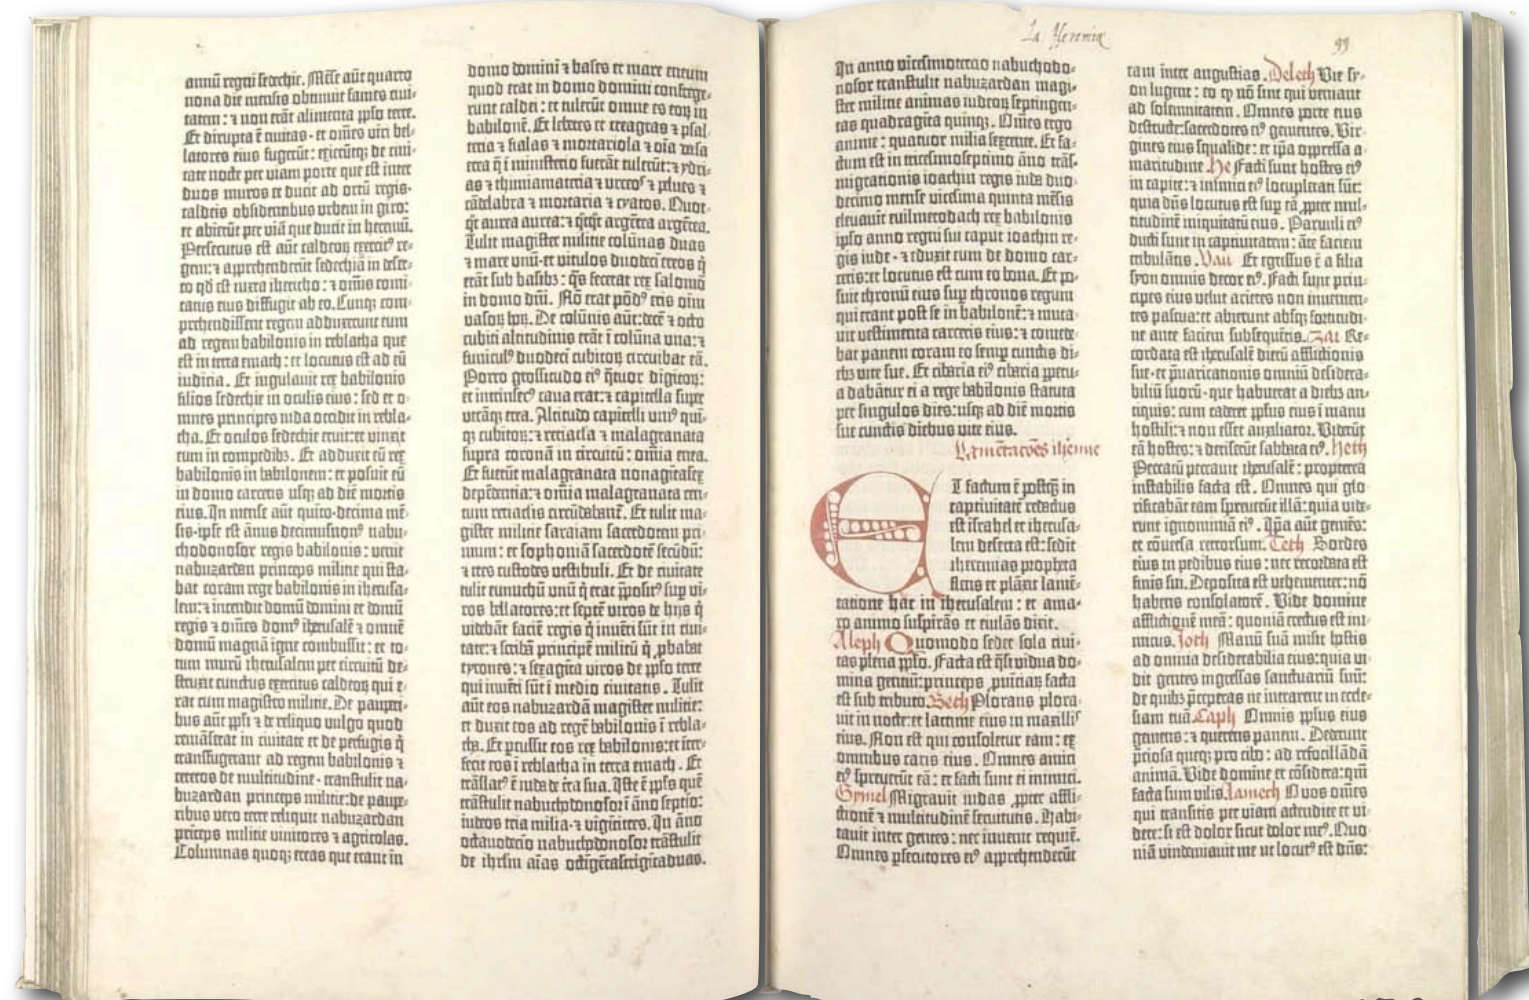 annū regni sedechie. Mēse aūt quarto
nona die mensis obtinuit fames ciui-
tatem: ⁊ non erāt alimenta ꝓpło terre.
Et dirupta ē ciuitas · et oīnes viri bel-
latores eius fugerūt: exierūtꝗ de ciui-
tate nocte per viam porte que est inter
duos muros et ducit ad ortū regis·
caldeis obsidentibus vrbem in giro:
et abierūt per viā que ducit in heremū.
Persecutus est aūt caldeoꝝ exercitꝰ re-
gem: ⁊ apprehenderūt sedechiā in deser-
to qd̄ est iuxta ihericho: ⁊ oīnis comi-
tatus eius diffugit ab eo. Cunqꝫ com-
prehendissent regem adduxerunt eum
ad regem babilonis in reblatha que
est in terra emath: et locutus est ad eū
iudicia. Et iugulauit rex babilonis
filios sedechie in oculis eius: sed et o-
mnes principes iuda occidit in rebla-
tha. Et oculos sedechie eruit: et vinxit
eum in compedibꝫ. Et adduxit eū rex
babilonis in babilonem: et posuit eū
in domo carceris usqꝫ ad diē mortis
eius. In mense aūt quito · decima mē-
sis · ipse est ānus decimusnonꝰ nabu-
chodonosor regis babilonis: venit
nabuzardan princeps militie qui sta-
bat coram rege babilonis in iherusa-
lem: ⁊ incendit domū domini et domū
regis ⁊ oīnes domꝰ iherusalē ⁊ omnē
domū magnā igne combussit: et to-
tum murū iherusalem per circuitū de-
struxit cunctus exercitus caldeoꝝ qui e-
rat cum magistro militie. De pauperi-
bus aūt ppłi ⁊ de reliquo vulgo quod
remāserat in ciuitate et de perfugis q̇
transfugerant ad regem babilonis ⁊
ceteros de multitudine · transtulit na-
buzardan princeps militie: de paupe-
ribus vero terre reliquit nabuzardan
princeps militie vinitores ⁊ agricolas.
Columnas quoqꝫ ereas que erant in
domo domini ⁊ bases et mare eneum
quod erat in domo domini confrege-
runt caldei: et tulerūt omne es eoꝝ in
babilonē. Et lebetes et creagras ⁊ psal-
teria ⁊ fialas ⁊ mortariola ⁊ oīa vasa
erea q̄ ī ministerio fuerāt tulerūt: ⁊ ydri-
as ⁊ thimiamateria ⁊ vrceoꝰ ⁊ pelues ⁊
cādelabra ⁊ mortaria ⁊ cyatos. Quot-
qt̄ aurea aurea: ⁊ q̄tqt̄ argētea argētea.
Tulit magister militie colūnas duas
⁊ mare unū · et vitulos duodecī ereos q̇
erāt sub basibꝫ: q̄s fecerat rex salomō
in domo dn̄i. Nō erat pōdꝰ eris oīm
vasoꝝ hoꝝ. De colūnis aūt: decē ⁊ octo
cubiti altitudinis erāt ī colūna una: ⁊
funiculꝰ duodecī cubitoꝝ circuibat eā.
Porro grossitudo eiꝰ q̄tuor digitoꝝ:
et intrinsecꝰ caua erat: ⁊ capitella supr̄
utrāqꝫ erea. Altitudo capitelli uniꝰ qui-
qꝫ cubitoꝝ: ⁊ reciacla ⁊ malagranata
supra coronā in circuitū: omīa enea.
Et fuerūt malagranata nonagītasex
depēdentia: ⁊ omīa malagranata cen-
tum reciaclis circūdabant. Et tulit ma-
gister militie saraiam sacerdotem pri-
mum: et sophoniā sacerdotē secūdū:
⁊ tres custodes vestibuli. Et de ciuitate
tulit eunuchū unū q̇ erat ꝓpositꝰ sup vi-
ros bellatores: et septē viros de hijs q̇
videbāt faciē regis q̇ inuēti sūt in ciui-
tate: ⁊ scribā principē militū q̇ ꝓbabat
tyrones: ⁊ sexagīta viros de ppło terre
qui inuēti sūt ī medio ciuitatis. Tulit
aūt eos nabuzardā magister militie:
et duxit eos ad regē babilonis ī rebla-
tha. Et percussit eos rex babilonis: et iter-
fecit eos ī reblatha in terra emath. Et
trāslatꝰ ē iuda de terra sua. Iste ē ppłs quē
trāstulit nabuchodonosor ī āno septīo:
iudeos tria milia · ⁊ vigītitres. In āno
octauodecīo nabuchodonosor trāstulit
de ihrlm aīas octīgētastrigītaduas.
La. Jeremiæ
99
In anno vicesimotercio nabuchodo-
nosor transtulit nabuzardan magi-
ster militie animas iudeoꝝ septingen-
tas quadragīta quinqꝫ. Oīnes ergo
anime: quatuor milia sexcente. Et fa-
ctum est in tricesimoseptimo āno trās-
migrationis ioachin regis iuda duo-
decimo mense vicesima quinta mēsis
eleuauit euilmerodach rex babilonis
ipso anno regni sui caput ioachin re-
gis iude · ⁊ eduxit eum de domo car-
ceris: et locutus est cum eo bona. Et po-
suit thronū eius sup thronos regum
qui erant post se in babilonē: ⁊ muta-
uit vestimenta carceris eius: ⁊ comede-
bat panem coram eo semp cunctis di-
ebꝫ vite sue. Et cibaria eiꝰ cibaria ppetu-
a dabātur ei a rege babilonis statuta
per singulos dies: usqꝫ ad diē mortis
sue cunctis diebus vite eius.
Lamētacōes ih'emie
Et factum ē postqꝫ in
captiuitatē redactus
est israhel et iherusa-
lem deserta est: sedit
iheremias propheta
flens et plāxit lamē-
tatione hac in iherusalem: et ama-
ro animo suspirās et eiulās dixit.
Aleph Quomodo sedet sola ciui-
tas plena ppło. Facta est q̄si vidua do-
mina gentiū: princeps ꝓuīciaꝝ facta
est sub tributo. Beth Plorans plora-
uit in nocte: et lacrime eius in maxillis
eius. Non est qui consoletur eam: ex
omnibus caris eius. Omnes amici
eiꝰ spreuerūt eā: et facti sunt ei inimici.
Gymel Migrauit iudas ꝓpter affli-
ctionē ⁊ multitudinē seruitutis. Habi-
tauit inter gentes: nec inuenit requiē.
Omnes ꝑsecutores eiꝰ apprehenderūt
eam inter augustias. Deleth Vie sy-
on lugent: eo qꝫ nō sint qui veniant
ad solennitatem. Omnes porte eius
destructe: sacerdotes eiꝰ gementes. Vir-
gines eius squalide: et ipā oppressa a-
maritudine. He Facti sunt hostes eiꝰ
in capite: ⁊ inimici eiꝰ locupletati sūt:
quia dn̄s locutus est sup eā ꝓpter mul-
titudinē iniquitatū eius. Paruuli eiꝰ
ducti sunt in captiuitatem: āte faciem
tribulātis. Vau Et egressus ē a filia
syon omnis decor eiꝰ. Facti sunt prin-
cipes eius velut arietes non inuenien-
tes pascua: et abierunt absqꝫ fortitudi-
ne ante faciem subsequētis. Zai Re-
cordata est iherusalē dierū afflictionis
sue · et p̄uaricationis omniū desidera-
biliū suorū · que habuerat a diebꝫ an-
tiquis: cum caderet ppłus eius ī manu
hostili: ⁊ non esset auxiliator. Viderūt
eā hostes: ⁊ deriserūt sabbata eiꝰ. Heth
Peccatū peccauit iherusalē: propterea
instabilis facta est. Omnes qui glo-
rificabāt eam spreuerūt illā: quia vide-
runt ignominiā eiꝰ. Ip̄a aūt gemēs:
et cōuersa retrorsum. Teth Sordes
eius in pedibus eius: nec recordata est
finis sui. Deposita est vehementer: nō
habens consolatorē. Vide domine
afflictionē meā: quoniā erectus est ini-
micus. Joth Manū suā misit hostis
ad omnia desiderabilia eius: quia vi-
dit gentes ingressas sanctuariū suū:
de quibꝫ p̄ceperas ne intrarent in eccle-
siam tuā. Caph Omnis ppłus eius
gemens: ⁊ querens panem. Dederunt
p̄ciosa queqꝫ pro cibo: ad refocillādā
animā. Vide domine et cōsidera: qm̄
facta sum vilis. Lamech O vos oīnes
qui transitis per viam attendite et vi-
dete: si est dolor sicut dolor meꝰ. Quo-
niā vindemiauit me ut locutꝰ est dn̄s: